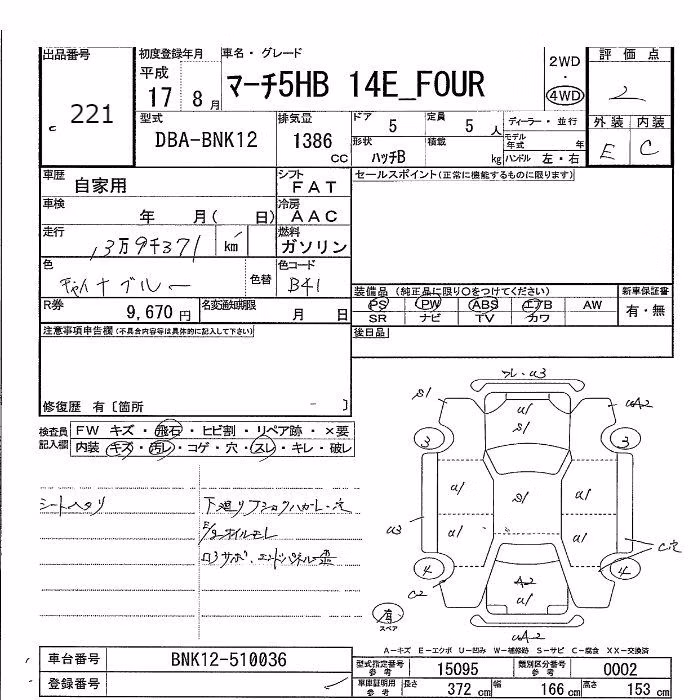 出品番号 初度登録年月 車名・グレード 評価点
平成 17 8 月 マーチ5HB 14E_FOUR 2WD ・ 4WD 2
221
c
型式 排気量 ドア 5 定員 5 人 ディーラー・並行 外装 内装
DBA-BNK12 1386 CC 形状 ハッチB 積載 kg モデル年式 年 E C
ハンドル 左・右
車歴 自家用 シフト FAT セールスポイント(正常に機能するものに限ります)
車検 年 月( 日) 冷房 AAC
走行 13万9千371 km 燃料 ガソリン
色 チャイナブルー 色替 色コード B41
装備品 (純正品に限り○をつけてください) 新車保証書
PS PW ABS エアB AW 有・無
SR ナビ TV カワ
R券 9,670 円 名変通知期限 月 日
注意事項申告欄(不具合内容等は具体的に記入して下さい) 後日品
修復歴 有〔箇所 - 〕
検査員記入欄 FW キズ・飛石・ヒビ割・リペア跡・×要
内装 キズ・汚レ・コゲ・穴・スレ・キレ・破レ
シートヘタリ 下廻り
オイルモレ
スレ・U3
S1 UA2
U1
S1
3 3
U1 S1 U1
U3 U1 U1 C穴
4 4
C2 A2
U1
UA2
有
スペア
A-キズ E-エクボ U-凹み W-補修跡 S-サビ C-腐食 XX-交換済
車台番号 BNK12-510036
登録番号
型式指定番号 参考 15095 類別区分番号 参考 0002
車庫証明用 参考 長さ 372 cm 幅 166 cm 高さ 153 cm